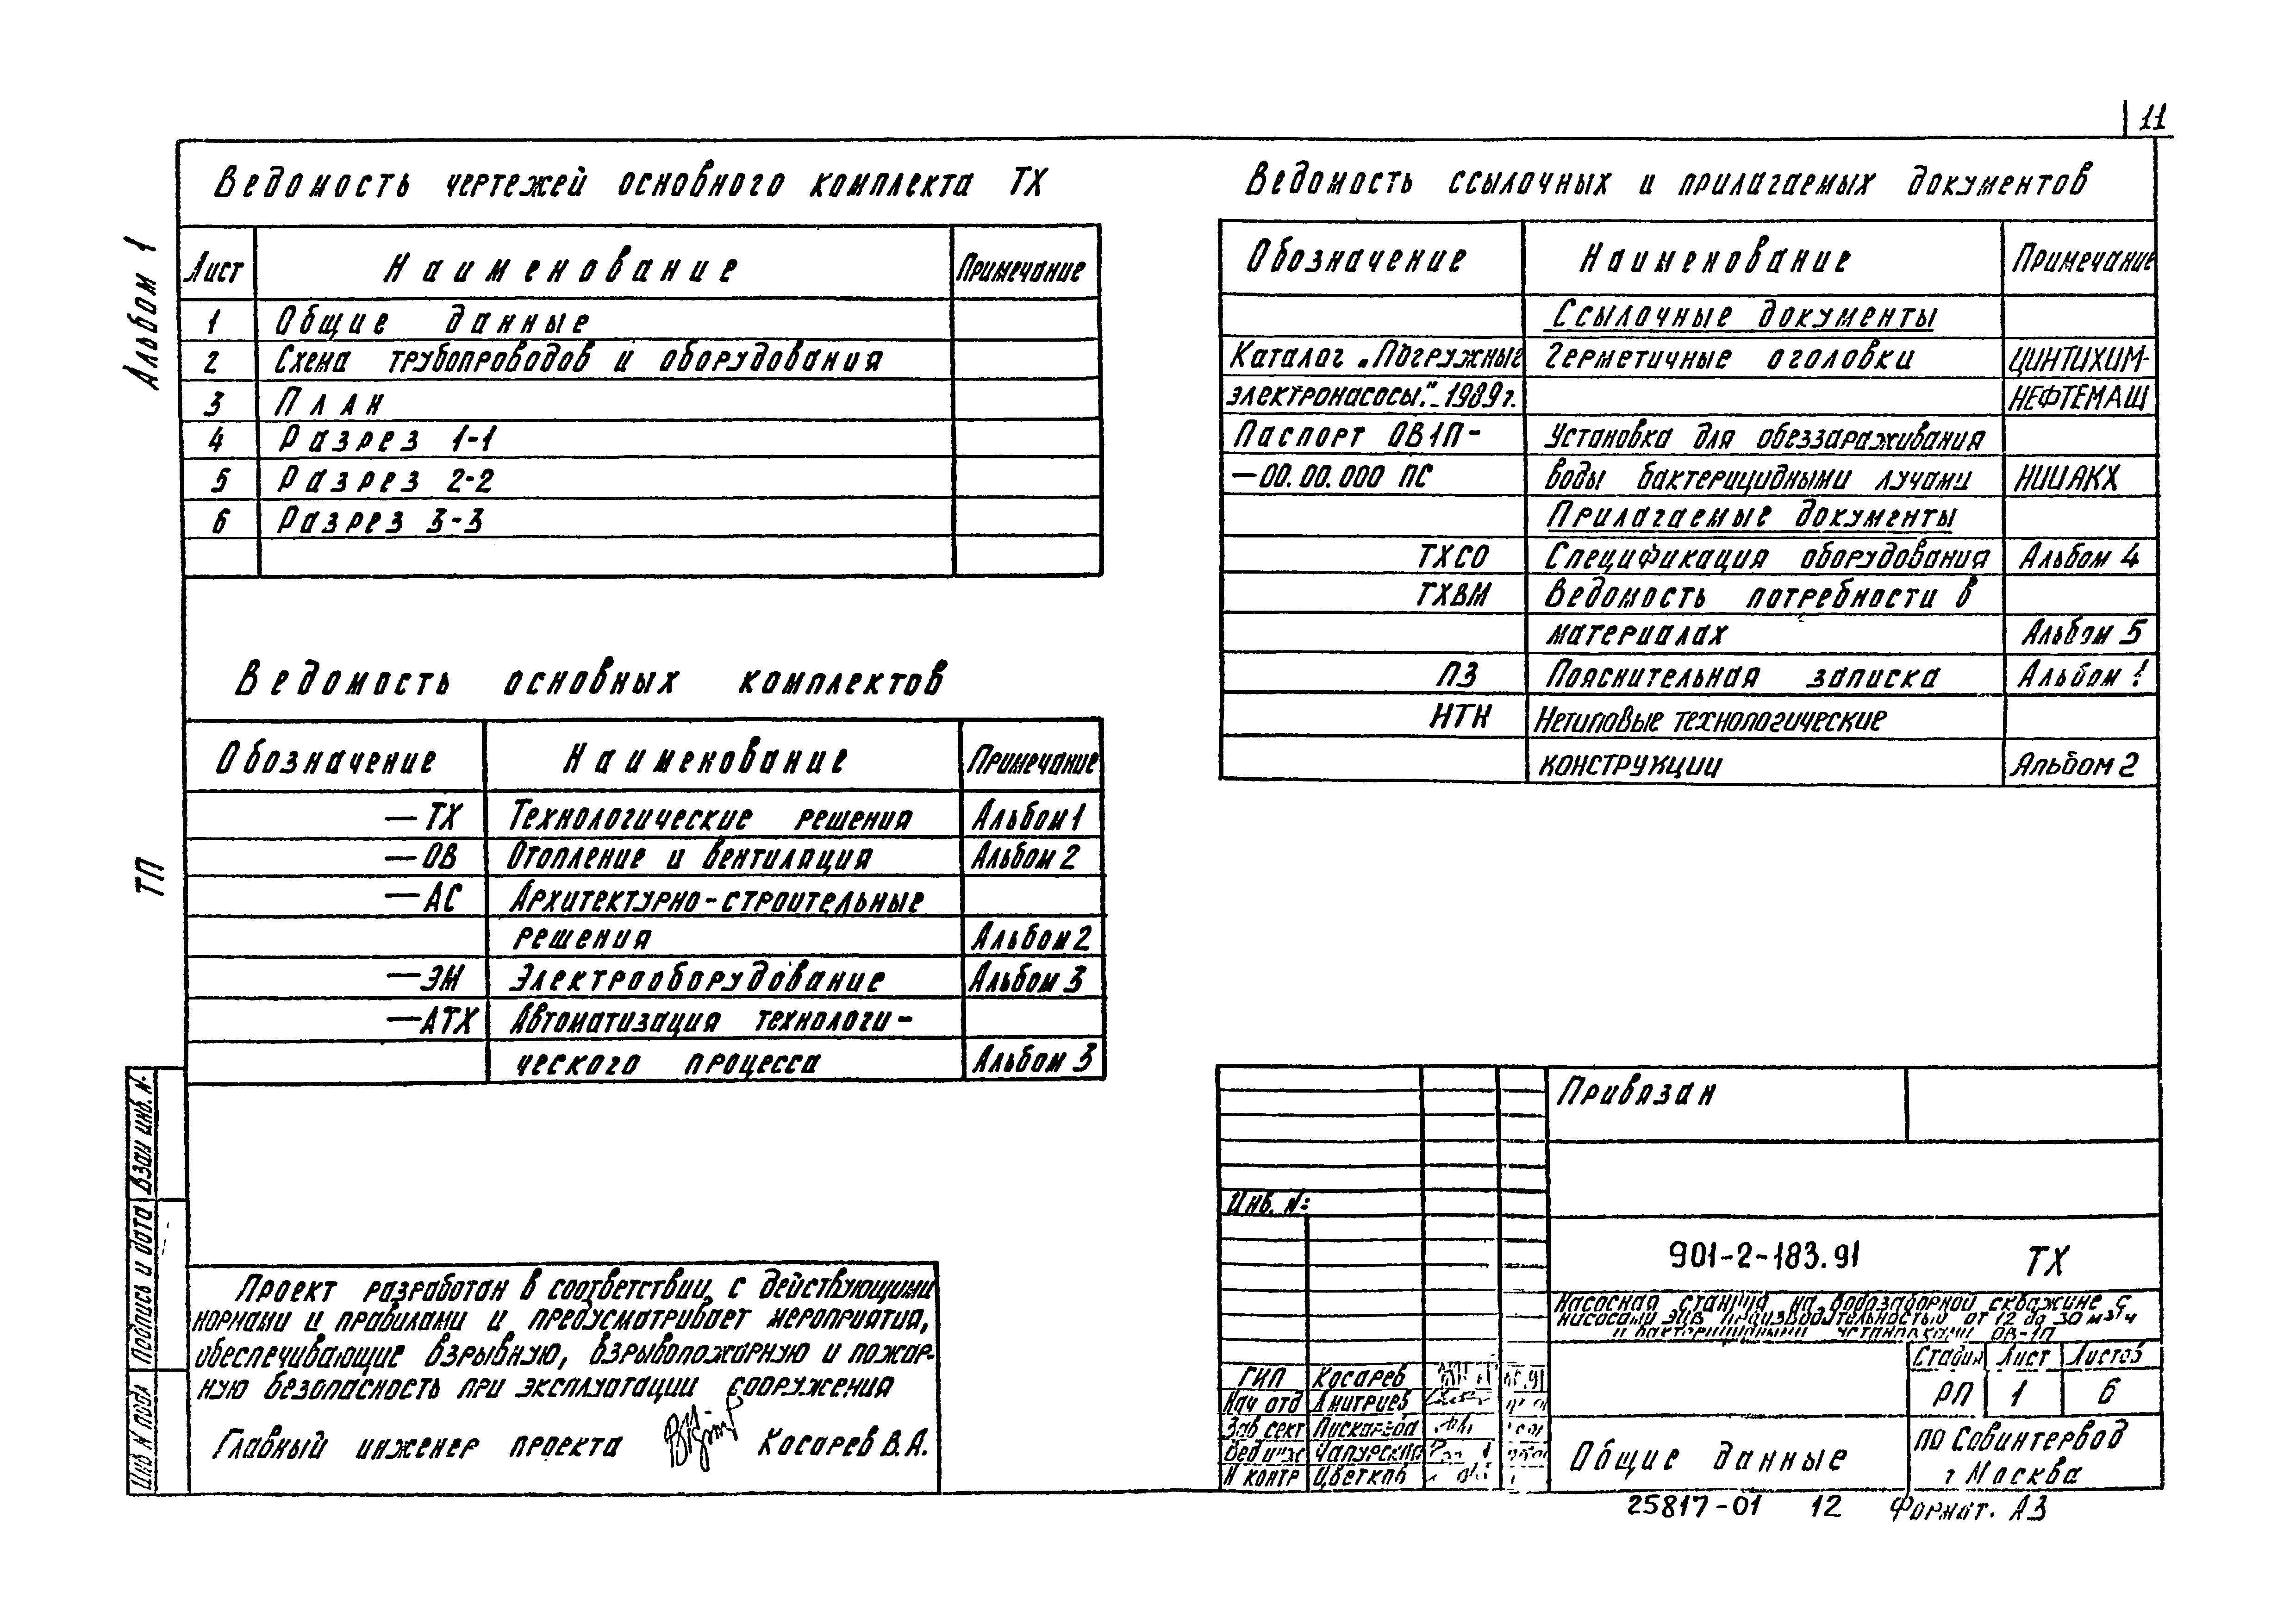 11
Альбом 1
ТП
Ведомость чертежей основного комплекта ТХ
Лист Наименование Примечание
1 Общие данные
2 Схема трубопроводов и оборудования
3 План
4 Разрез 1-1
5 Разрез 2-2
6 Разрез 3-3
Ведомость основных комплектов
Обозначение Наименование Примечание
—ТХ Технологические решения Альбом 1
—ОВ Отопление и вентиляция Альбом 2
—АС Архитектурно-строительные
решения Альбом 2
—ЭМ Электрооборудование Альбом 3
—АТХ Автоматизация технологи-
ческого процесса Альбом 3
Взам инв. N.
Подпись и дата
Инв N подл
Проект разработан в соответствии с действующими
нормами и правилами и предусматривает мероприятия,
обеспечивающие взрывную, взрывопожарную и пожар-
ную безопасность при эксплуатации сооружения
Главный инженер проекта Косарев В.А.
Ведомость ссылочных и прилагаемых документов
Обозначение Наименование Примечание
Ссылочные документы
Каталог „Погружные Герметичные оголовки ЦИНТИХИМ-
электронасосы." - 1989г. НЕФТЕМАШ
Паспорт ОВ1П- Установка для обеззараживания
—00.00.000 ПС воды бактерицидными лучами НИИАКХ
Прилагаемые документы
ТХСО Спецификация оборудования Альбом 4
ТХВМ Ведомость потребности в
материалах Альбом 5
ПЗ Пояснительная записка Альбом 1
НТК Нетиповые технологические
конструкции Альбом 2
Привязан
Инв. N:
901-2-183.91 ТХ
Насосная станция на водозаборной скважине с
насосами ЭЦВ производительностью от 12 до 30 м³/ч
и бактерицидными установками ОВ-1П
Стадия Лист Листов
РП 1 6
ГИП Косарев
Нач отд Дмитриев
Зав сект Пискарева
Вед инж
Н контр Цветков
Общие данные
по Совинтервод
г Москва
25817-01 12 Формат. А3